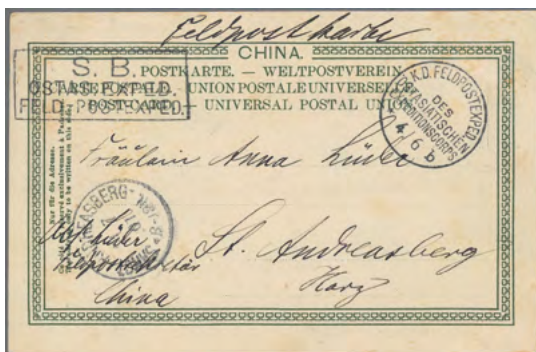 Feldpostkarte
CHINA.
POSTKARTE. — WELTPOSTVEREIN
CARTE POSTALE. — UNION POSTALE UNIVERSELLE
POST-CARD. — UNIVERSAL POSTAL UNION
S. B.
OSTAS. EXPED.
FELD-POSTEXPED.
K.D. FELDPOSTEXPED.
DES
OSTASIATISCHEN
EXPEDITIONSCORPS
4/6 b
Nur für die Adresse.
Fräulein Anna Lüder
St. Andreasberg
Harz
Lüder
Feldpostsekretär
China